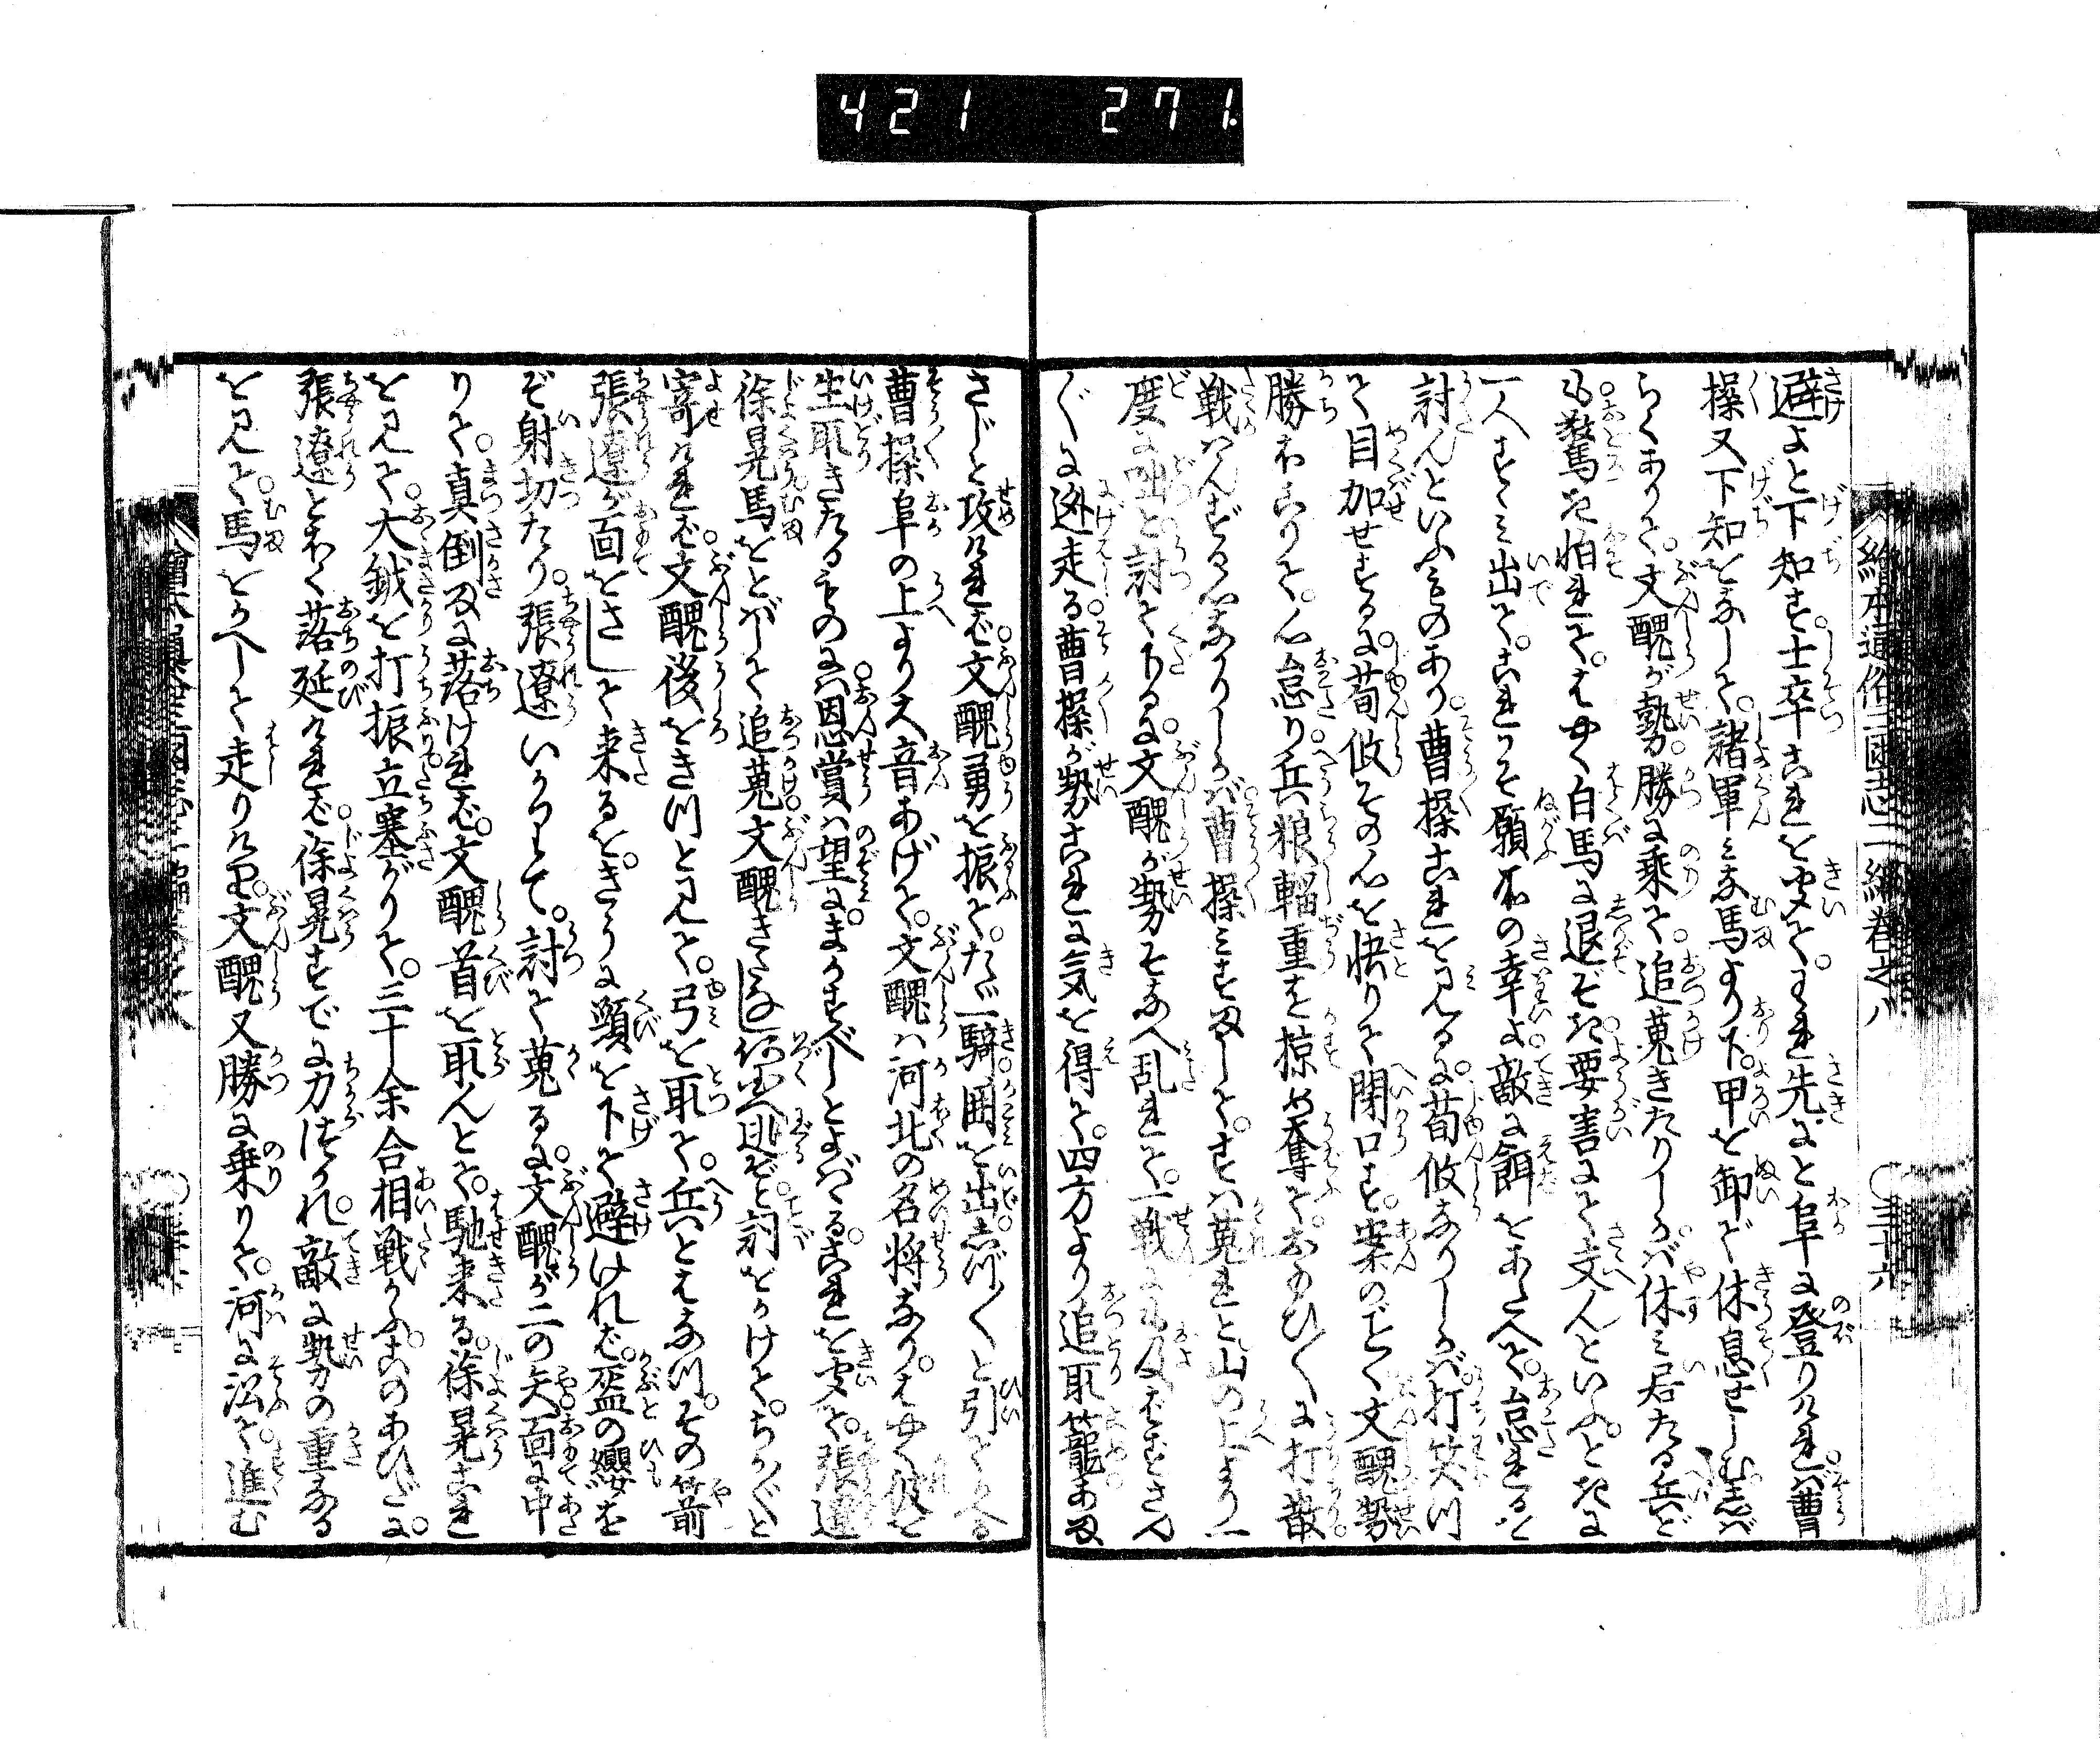 421 271
絵本通俗三国志二編巻之八 〇三十六
避よと下知す。士卒これを聞て。われ先にと阜に登りければ曹
操又下知をなして。諸軍みな馬より下。甲を卸ぎ休息せしむ。しば
らくありて。文醜が勢勝に乗て。追蒐きたりしかば。休み居たる兵ど
も驚き怕れて。はやく白馬に退ぞき。要害にて支んといふ。ときに
一人すゝみ出て。これこそ願ふ所の幸よ敵に餌をあたへて。怠れるを
討んといふものあり。曹操これを見るに。荀攸なりしかば。打笑つ
て目加せするに。荀攸その心を快りて閉口す。案のごとく文醜勢
勝ほこりて。心怠り兵粮輜重を掠め奪て。おもひ〳〵に打散
戦はんずる心なかりしかば。曹操みすまして。すは蒐れと山の上より一
度に咄と討て下るに。文醜が勢そなへ乱れて。一戦にも及ばずさん
〴〵に迯走る。曹操が勢これに気を得て。四方より追取籠あま
さじと攻ければ。文醜勇を振て。たゞ一騎囲を出しづ〳〵と引とる
曹操阜の上より大音あげて。文醜は河北の名将なり。はやく彼を
生取きたるものには恩賞は望にまかすべしとよばゝる。これを聞て。張遼
徐晃馬をとばして追蒐文醜きたなし何処へ逃ぞと詞をかけて。ちかぐと
寄ければ文醜後をきつと見て。弓を取て。兵とはなつ。その箭
張遼が面をさして来るを。きうに頭を下て避ければ。盔の纓を
ぞ射切たり。張遼いかつて。討て蒐るに。文醜が二の矢面に中
りて。真倒に落ければ。文醜首を取んとて。馳来る。徐晃これ
を見て。大鉞を打振立塞がりて。三十余合相戦かふ。このあひだに。
張遼とほく落延ければ。徐晃すでに力つかれ。敵に勢の重なる
を見て。馬をかへして走りけり。文醜又勝に乗りて。河に沿て。進む